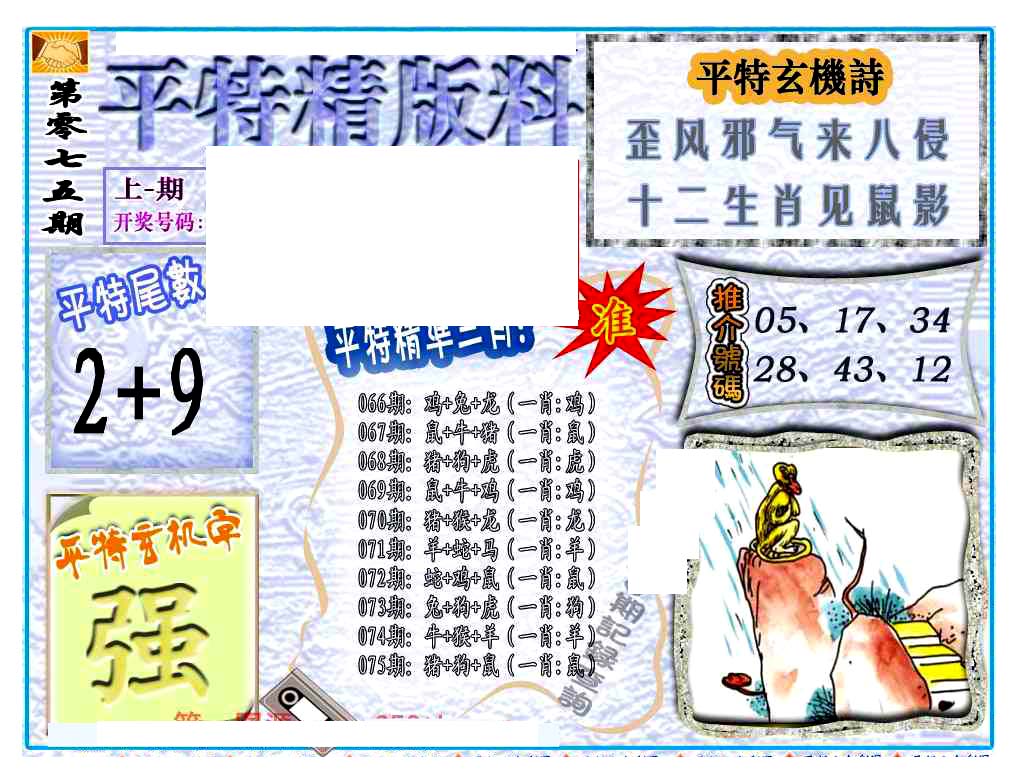 第零七五期
平特精版料
上-期
开奖号码:
平特玄機詩
歪风邪气来八侵
十二生肖见鼠影
平特尾數
2+9
准
推介號碼
05、17、34
28、43、12
066期: 鸡+兔+龙(一肖:鸡)
067期: 鼠+牛+猪(一肖:鼠)
068期: 猪+狗+虎(一肖:虎)
069期: 鼠+牛+鸡(一肖:鸡)
070期: 猪+猴+龙(一肖:龙)
071期: 羊+蛇+马(一肖:羊)
072期: 蛇+鸡+鼠(一肖:鼠)
073期: 兔+狗+虎(一肖:狗)
074期: 牛+猴+羊(一肖:羊)
075期: 猪+狗+鼠(一肖:鼠)
期記録查詢
平特玄机字
强